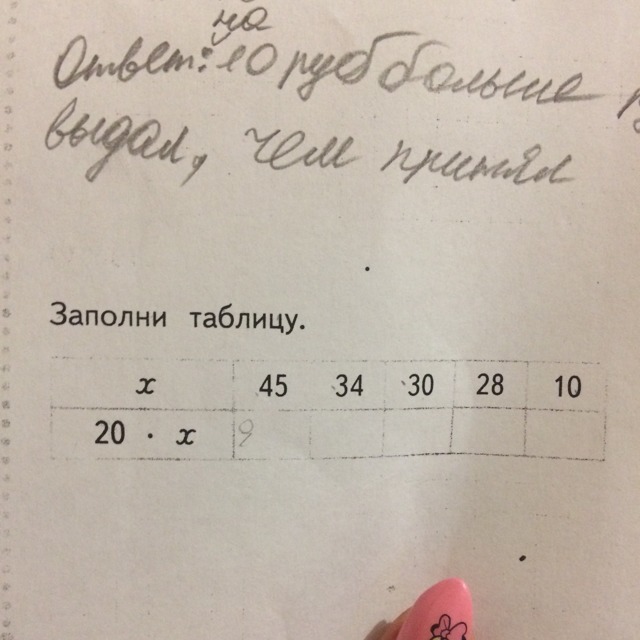 на
Ответ: 10 руб больше
выдал, чем принял
Заполни таблицу.
x 45 34 30 28 10
20 · x 9